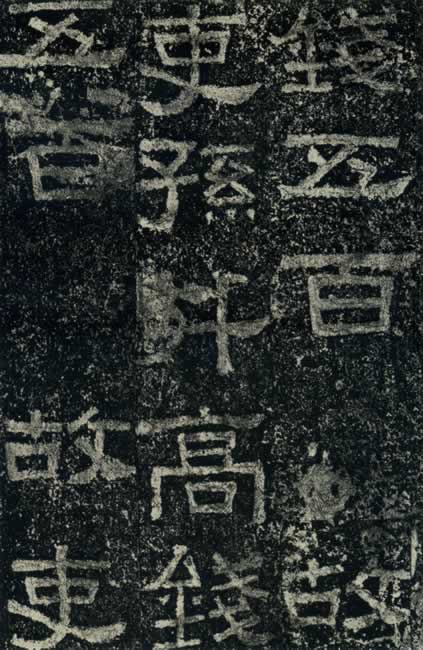 錢五百故
吏孫升高錢
五百故吏